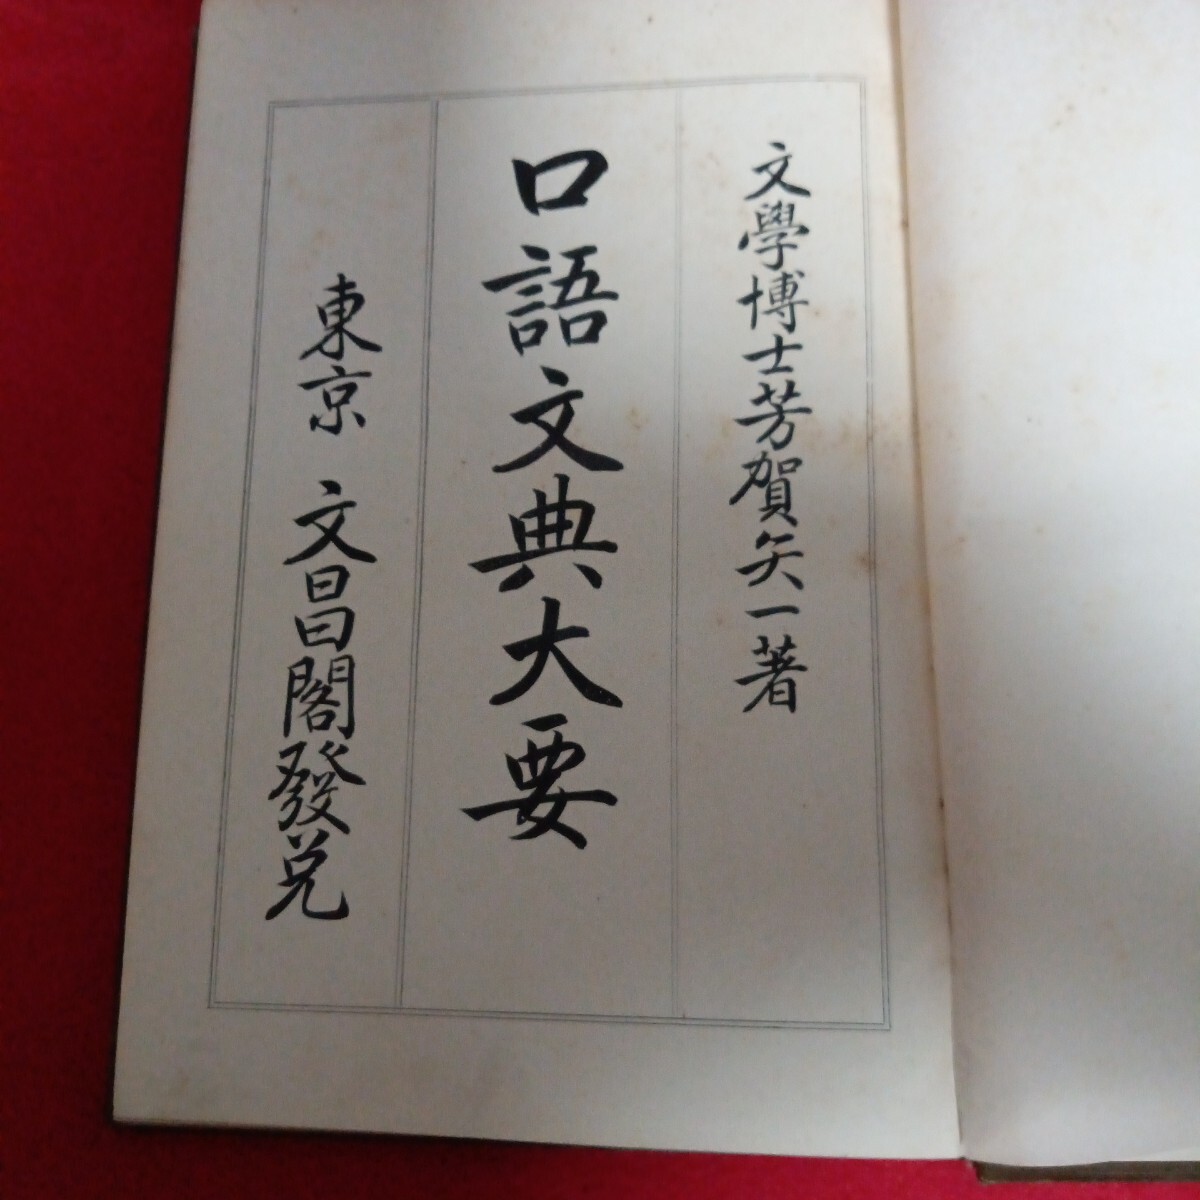 文學博士芳賀矢一著
口語文典大要
東京 文昌閣發兌